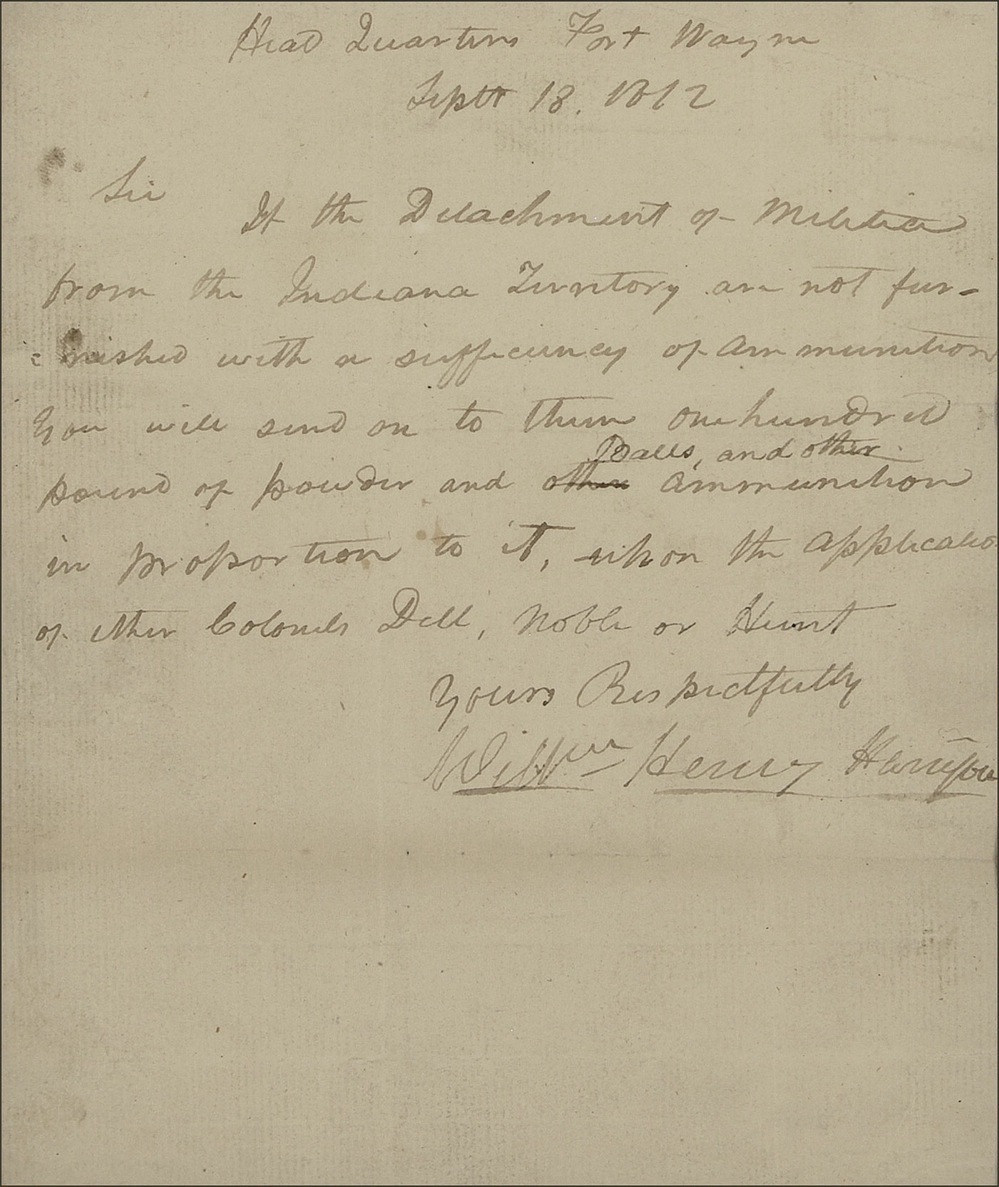 Head Quarters Fort Wayne
Septr 18. 1812
Sir
If the Detachment of Militia
from the Indiana Territory are not fur-
nished with a sufficiency of Ammunition
You will send on to them one hundred
Balls, and other
pound of powder and other Ammunition
in proportion to it, upon the Applicatio
of either Colonels Dill, Noble or Hunt
Yours Respectfully
Willm Henry Harrison